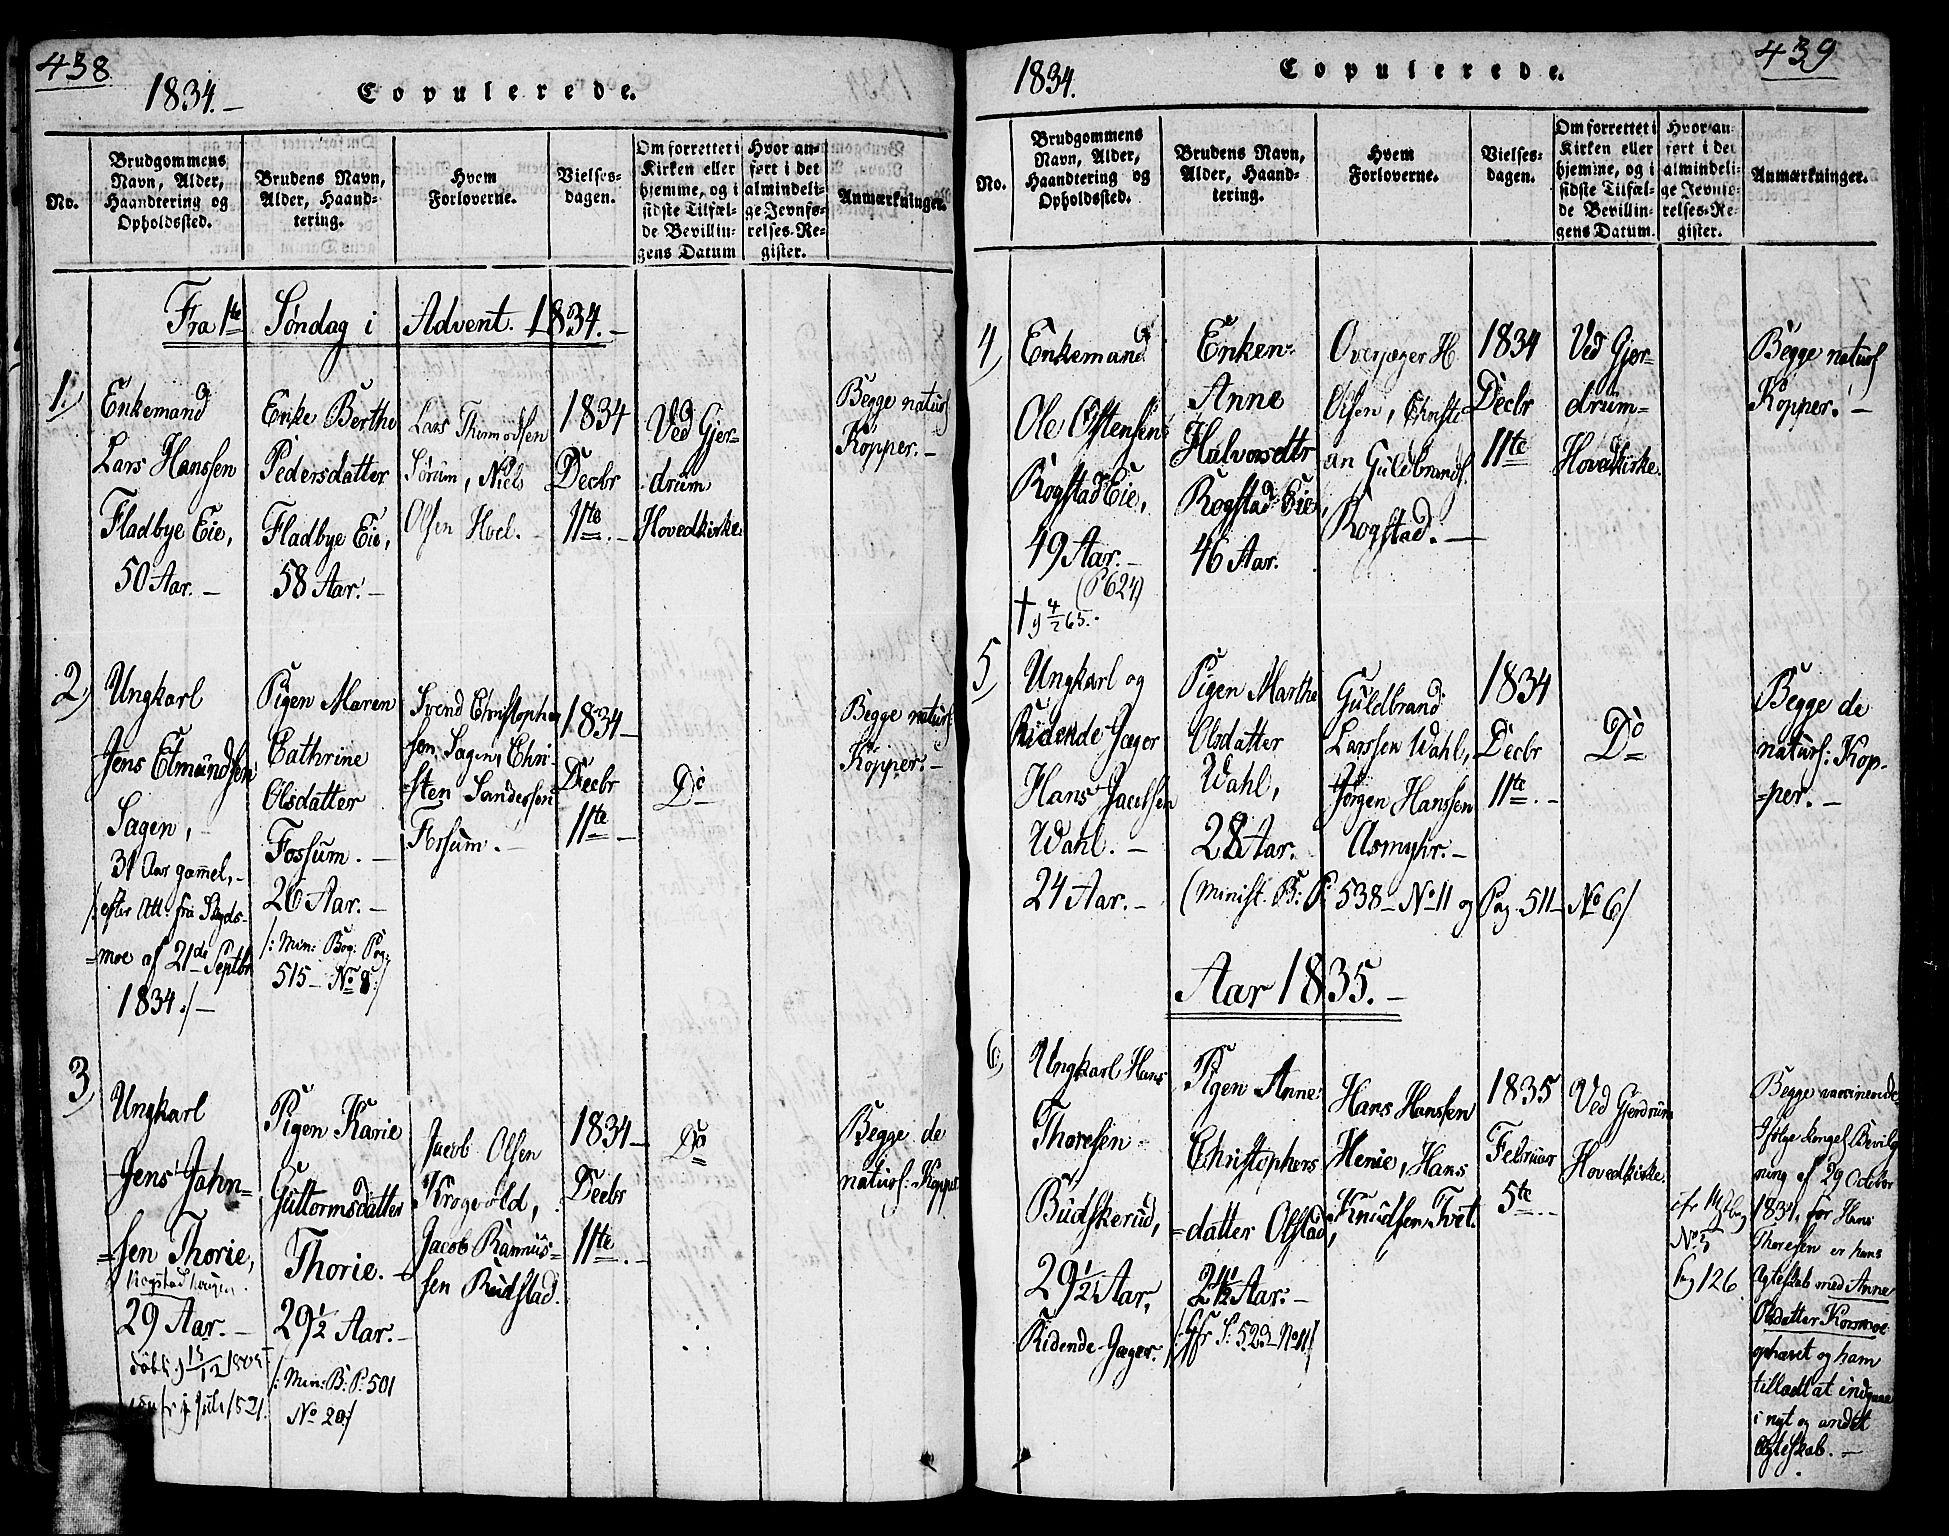 438
1834.-
Copulerede.
No.
Brudgommens
Navn, Alder,
Haandtering og
Opholdssted.
Brudens Navn,
Alder, Haand-
tering.
Hvem
Forloverne.
Vielses-
dagen.
Om forrettet i
Kirken eller
hjemme, og i
sidste Tilfæl-
de Bevillin-
gens Datum
Hvor an-
ført i det
almindeli-
ge Jevnfø-
relses-Re-
gister.
Anmærkninger.
Fra 1te Søndag i Advent. 1834.-
1.)
Enkemand
Lars Hanssen
Fladbye Eie,
50 Aar.-
Enke Berthe
Pedersdatter
Fladbye Eie,
58 Aar.-
Lars Thormodsen
Sörum, Niels
Olsen Hoel.-
1834
Decbr
11te.-
Ved Gjer-
drum
Hovedkirke.
Begge naturl
Kopper.-
2.)
Ungkarl
Jens Etmundsen
Sagen,
31 Aar gamel,-
/: efter Att: fra Skeds-
=moe af 21de Septbr
1834:/-
Pigen Maren
Cathrine
Olsdatter
Fossum.-
26 Aar.-
/: Min: Bog: Pag:
515- No 8:/
Svend Christopher
sen Sagen, Chri-
sten Sandersen
Fossum.-
1834-
Decbr
11te-
Do
Begge naturl:
Kopper:-
3)
Ungkarl
Jens John-
=sen Thorie,
Rogstad haugen
29 Aar.-
Pigen Karie
Guttormsdatter
Thorie.-
29 1/2 Aar.-
/: Min: B: P: 501
No 20:/
Jacob Olsen
Krogvold,
Jacob Rasmus-
sen Rudstad.
1834-
Decbr
11te.-
Do
Begge de
naturl: Kopper
439
1834.
Copulerede.
No.
Brudgommens
Navn, Alder,
Haandtering og
Opholdssted.
Brudens Navn,
Alder, Haand-
tering.
Hvem
Forloverne.
Vielses-
dagen.
Om forrettet i
Kirken eller
hjemme, og i
sidste Tilfæl-
de Bevillin-
gens Datum.
Hvor an-
ført i det
almindeli-
ge Jevnfø-
relses-Re-
gister.
Anmærkninger.
4)
Enkemand
Ole Østensen
Rogstad Eie,
49 Aar.-
(P 624)
† 9 4/2 65.
Enken
Anne
Halvorsdtr
Rogstad Eie,
46 Aar.
Overjæger H.
Olsen, Christi
an Guldbrands.
Rogstad.-
1834
Decbr
11te
Ved Gjer-
drum-
Hovedkirke.
Begge naturl
Kopper.-
5)
Ungkarl og
Ridende Jæger
Hans Jacobsen
Wahl.-
24 Aar.-
Pigen Marthe
Olsdatter
Wahl,
28 Aar.
Guldbrand
Larssen Wahl,
Jörgen Hanssen
Asmyhr.-
1834
Decbr
11te.-
Do
Begge de
naturl: Kop-
=per.-
(Minist. B: P: 538- No 11 og Pag. 511- No 6/
Aar 1835.-
6)
Ungkarl Hans
Thoresen
Budskerud,
29 1/2 Aar,
Ridende Jæger.
Pigen Anne
Christophers
=datter Olstad,
21 1/2 Aar.-
/: Cfr S: 523- No 11/
Hans Hanssen
Henie, Hans
Knudsen Tvet.
1835
Februar
5te.-
Ved Gjerdrum
Hovedkirke.
No 5
Pag 126
Begge vaccinerede,
Ifølge Kongel. Bevilg
ning af 29 October
1834, for Hans
Thoresen er hans
Ægteskab med Anne
Olsdatter Kormoe
ophævet og ham
tilladt at indgaae
i nyt og andet
Ægteskab.-